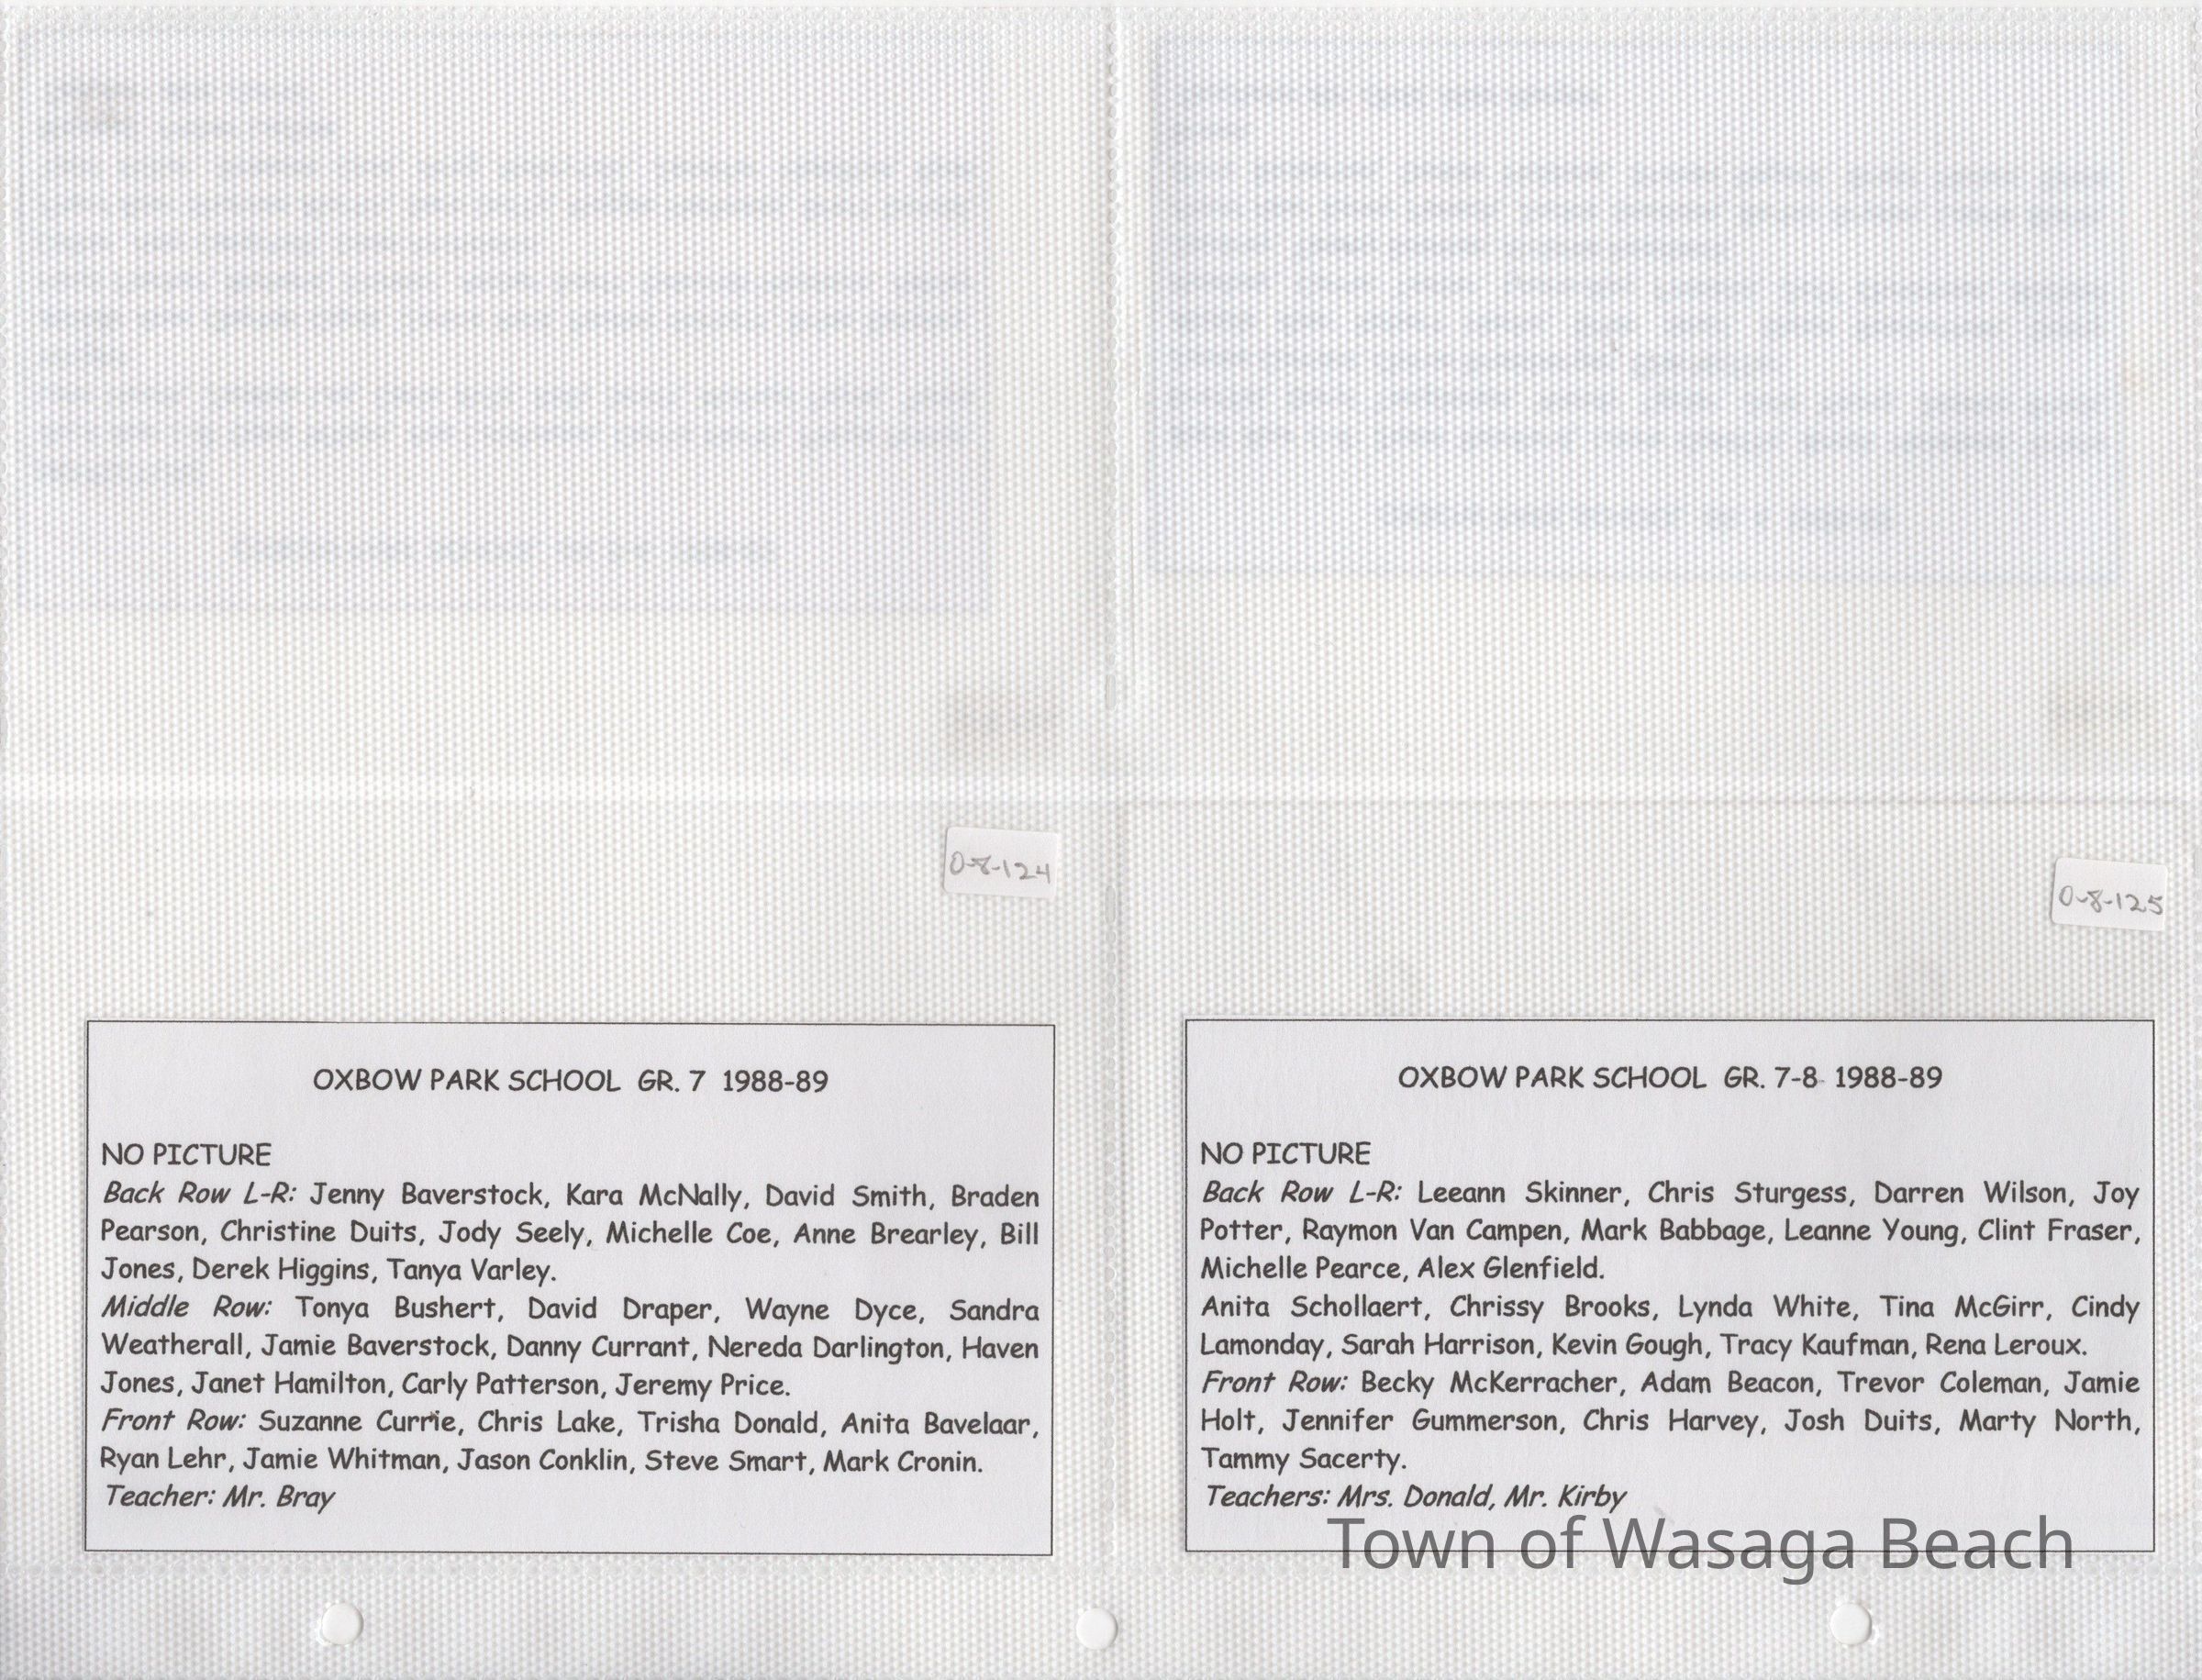 0-8-124
OXBOW PARK SCHOOL GR. 7 1988-89
NO PICTURE
Back Row L-R: Jenny Baverstock, Kara McNally, David Smith, Braden
Pearson, Christine Duits, Jody Seely, Michelle Coe, Anne Brearley, Bill
Jones, Derek Higgins, Tanya Varley.
Middle Row: Tonya Bushert, David Draper, Wayne Dyce, Sandra
Weatherall, Jamie Baverstock, Danny Currant, Nereda Darlington, Haven
Jones, Janet Hamilton, Carly Patterson, Jeremy Price.
Front Row: Suzanne Currie, Chris Lake, Trisha Donald, Anita Bavelaar,
Ryan Lehr, Jamie Whitman, Jason Conklin, Steve Smart, Mark Cronin.
Teacher: Mr. Bray
0-8-125
OXBOW PARK SCHOOL GR. 7-8 1988-89
NO PICTURE
Back Row L-R: Leeann Skinner, Chris Sturgess, Darren Wilson, Joy
Potter, Raymon Van Campen, Mark Babbage, Leanne Young, Clint Fraser,
Michelle Pearce, Alex Glenfield.
Anita Schollaert, Chrissy Brooks, Lynda White, Tina McGirr, Cindy
Lamonday, Sarah Harrison, Kevin Gough, Tracy Kaufman, Rena Leroux.
Front Row: Becky McKerracher, Adam Beacon, Trevor Coleman, Jamie
Holt, Jennifer Gummerson, Chris Harvey, Josh Duits, Marty North,
Tammy Sacerty.
Teachers: Mrs. Donald, Mr. Kirby
Town of Wasaga Beach